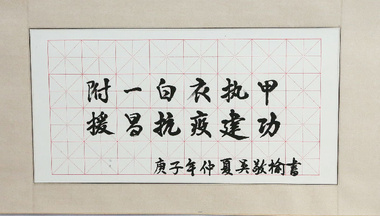 附一白衣执甲
援昌抗疫建功
庚子年仲夏吴敬榆書